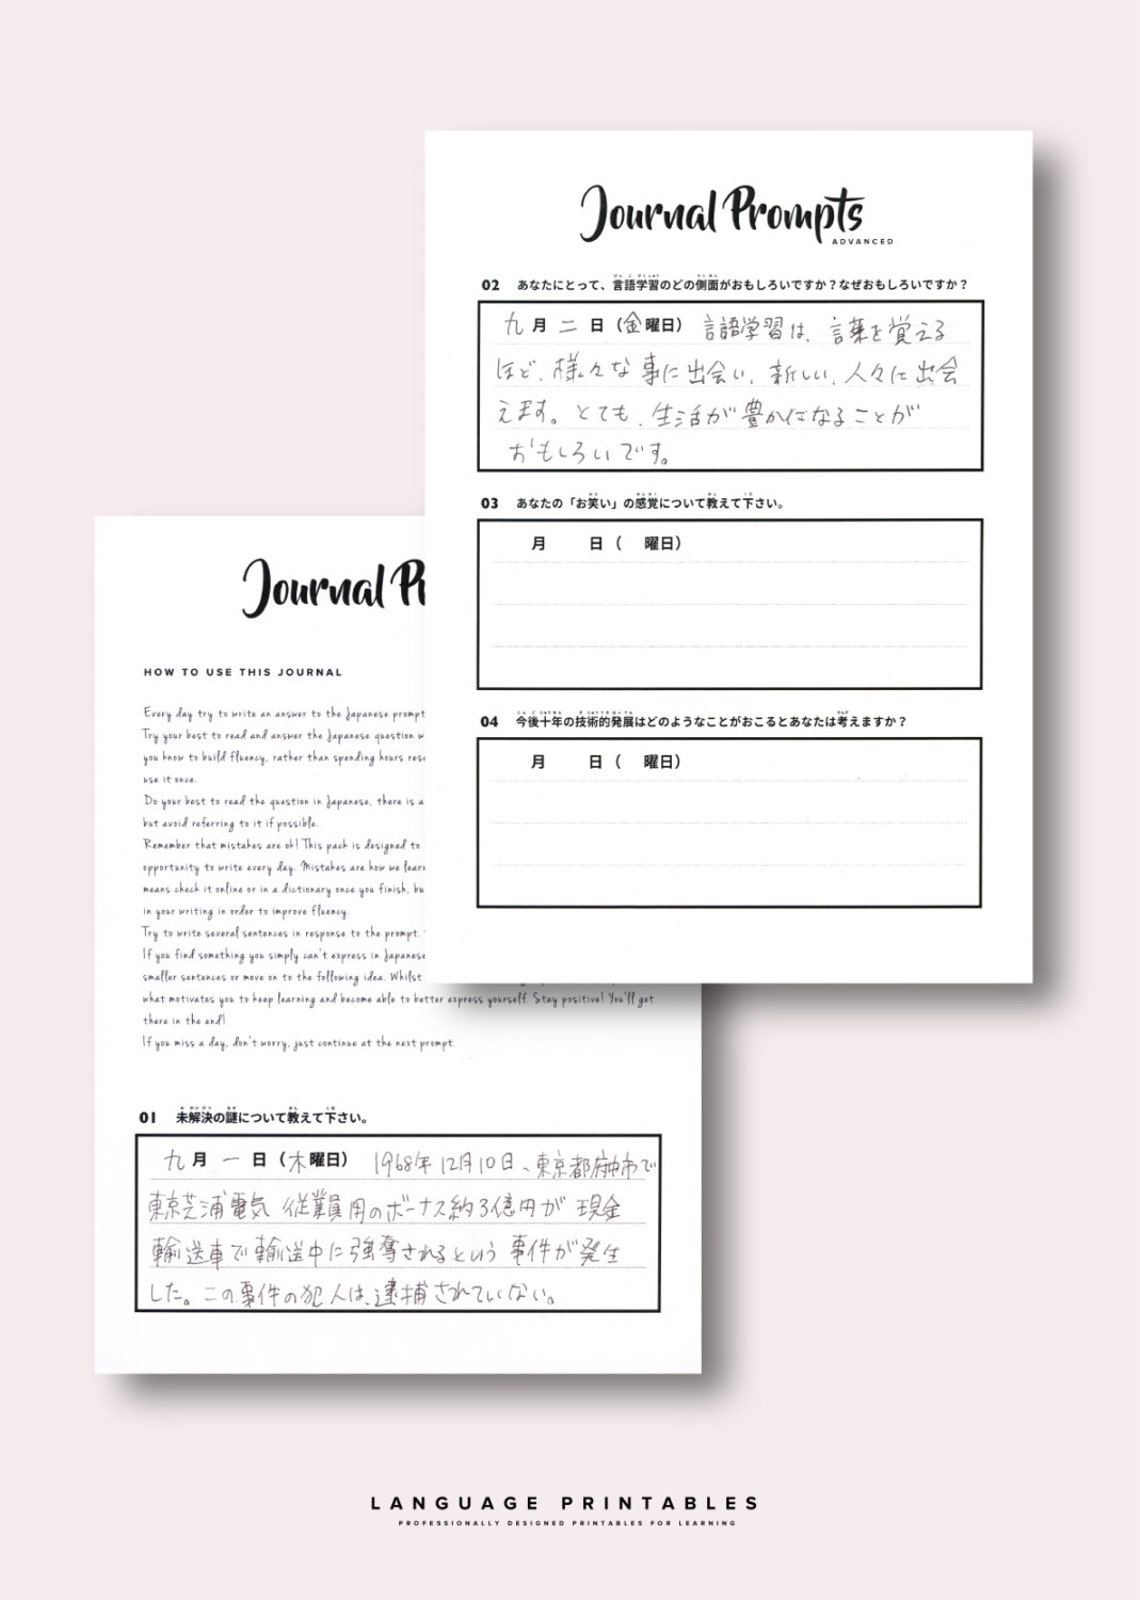 Journal Prompts
ADVANCED
02 あなたにとって、言語学習のどの側面がおもしろいですか？なぜおもしろいですか？
九月二日（金曜日） 言語学習は、言葉を覚える
ほど、様々な事に出会い、新しい、人々に出会
えます。とても、生活が豊かになることが
おもしろいです。
03 あなたの「お笑い」の感覚について教えて下さい。
月 日（ 曜日）
04 今後十年の技術的発展はどのようなことがおこるとあなたは考えますか？
月 日（ 曜日）
Journal Pr
HOW TO USE THIS JOURNAL
Every day try to write an answer to the Japanese prompt
Try your best to read and answer the Japanese question w
you know to build fluency, rather than spending hours rese
use it once.
Do your best to read the question in Japanese, there is a
but avoid referring to it if possible.
Remember that mistakes are ok! This pack is designed to
opportunity to write every day. Mistakes are how we learn
means check it online or in a dictionary once you finish, bu
in your writing in order to improve fluency.
Try to write several sentences in response to the prompt.
If you find something you simply can't express in Japanese
smaller sentences or move on to the following idea. Whilst
what motivates you to keep learning and become able to better express yourself. Stay positive! You'll get
there in the end!
If you miss a day, don't worry, just continue at the next prompt.
01 未解決の謎について教えて下さい。
九月一日（木曜日） 1968年12月10日、東京都府中市で
東京芝浦電気 従業員用のボーナス約3億円が 現金
輸送車で輸送中に強奪されるという 事件が発生
した。この事件の犯人は、逮捕されていない。
LANGUAGE PRINTABLES
PROFESSIONALLY DESIGNED PRINTABLES FOR LEARNING